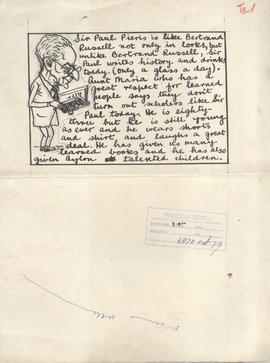 Sir Paul Pieris is like Bertrand
Russell not only in looks, but
unlike Bertrand Russell, Sir
Paul writes history and drinks
toddy. (only a glass a day).
Aunt Maria who has a
great respect for learned
people says they don't
turn out scholars like Sir
Paul today. He is eighty-
three but he is still young
as ever and he wears shorts
and shirt, and laughs a great
deal. He has given us many
learned books and he has also
given Ceylon talented children.